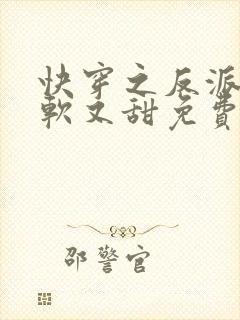 快穿之反派
軟又甜免費
邵警官